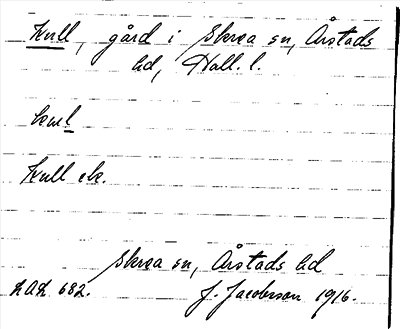 Kull, gård i Skrea sn, Årstads
hd, Hall. l.
kul
Kull ek.
Skrea sn, Årstads hd
KAK 682. J. Jacobsson 1916.